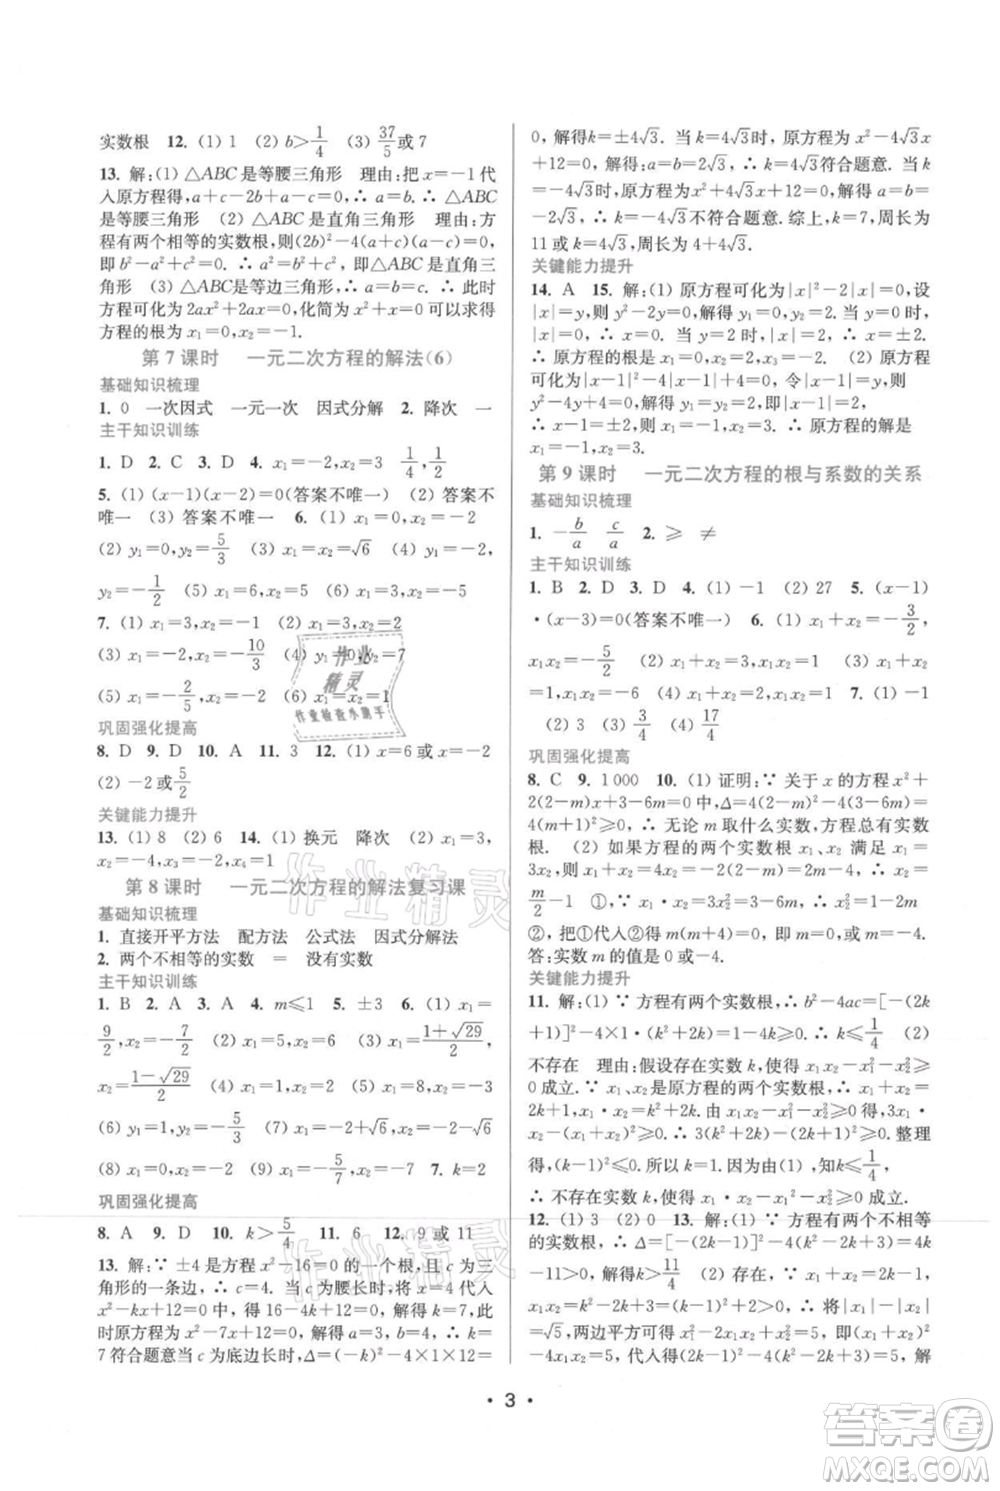 实数根 12. (1) 1 (2) b>1/4 (3) 37/5或 7
13. 解:(1) △ABC是等腰三角形 理由:把 x=-1代
入原方程得,a+c-2b+a-c=0,∴ a=b,∴ △ABC
是等腰三角形 (2) △ABC是直角三角形 理由:方
程有两个相等的实数根,则(2b)²-4(a+c)(a-c)=0,
即 b²-a²+c²=0. ∴ a²=b²+c². ∴ △ABC是直角三
角形 (3) ∵ △ABC是等边三角形,∴ a=b=c. ∴ 此时
方程可化为 2ax²+2ax=0,化简为 x²+x=0. 可以求得
方程的根为 x₁=0,x₂=-1.
第 7 课时 一元二次方程的解法(6)
基础知识梳理
1. 0 一次因式 一元一次 因式分解 2. 降次 一
主干知识训练
1. D 2. C 3. D 4. x₁=-2,x₂=3 1/4,1/2
5. (1) (x-1)(x-2)=0(答案不唯一) (2) 答案不唯
一 (3) 答案不唯一 6. (1) x₁=0,x₂=-2
(2) y₁=0,y₂=5/3 (3) x₁=x₂=√6 (4) y₁=-2,
y₂=-1/2 (5) x₁=6,x₂=5 (6) x₁=1,x₂=-2
7. (1) x₁=7,x₂=-1 (2) x₁=-1,x₂=-3
(3) x₁=-2,x₂=-10/3 (4) y₁=0,y₂=7
(5) x₁=-2/5,x₂=2 (6) x₁=x₂=1
巩固强化提高
8. D 9. D 10. A 11. 3 12. (1) x=6 或 x=-2
(2) -2 或5/2
关键能力提升
13. (1) 8 (2) 6 14. (1) 换元 降次 (2) x₁=3,
x₂=-4,x₃=-2,x₄=1
第 8 课时 一元二次方程的解法复习课
基础知识梳理
1. 直接开平方法 配方法 公式法 因式分解法
2. 两个不相等的实数 = 没有实数
主干知识训练
1. B 2. B 3. C 4. m≤1 5. ±3 6. (1) x₁=
9/2,x₂=-7/2 (2) x₁=7,x₂=-2 (3) x₁=(1+√29)/2,
x₂=(1-√29)/2 (4) x₁=1,x₂=2 (5) x₁=8,x₂=-3
(6) y₁=1,y₂=-5/3 (7) x₁=-2+√6,x₂=-2-√6
(8) x₁=-7,x₂=2 (9) x₁=5/3,x₂=-7 7. k=2
巩固强化提高
8. A 9. D 10. k>5/4 11. 6 12. 9 或 11
13. 解:∵ ±4 是方程 x²-16=0 的一个根,且 c 为三
角形的一条边,∴ c=4. ∴ 当 c 为腰长时,将 x=4 代入
x²-kx+12=0 中,得 16-4k+12=0,解得 k=7,此
时原方程为 x²-7x+12=0,解得 x₁=3,x₂=4. ∴ k=
7 符合题意当 c 为底边长时,Δ=k²-4×1×12=
0,解得k=±4√3. 当 k=4√3时,原方程为 x²-4√3x
+12=0,解得:a=b=2√3,∴ k=4√3符合题意. 当 k=
-4√3时,原方程为 x²+4√3x+12=0,解得:a=b=
-2√3,∴ k=-4√3不符合题意. 综上,k=7,周长为
11 或 k=4√3,周长为 4+4√3.
关键能力提升
14. A 15. 解:(1) 原方程可化为|x|²-2|x|=0,设
|x|=y,则 y²-2y=0,解得 y₁=0,y₂=2,即|x|=0
或|x|=2,∴ x₁=0,x₂=2,x₃=-2. (2) ∵ 原方
程可化为|x-1|²-4|x-1|+4=0,令|x-1|=y,
则 y²-4y+4=0,解得 y₁=y₂=2,即|x-1|=2,
∴ x-1=±2,∴ x=3 或 x=-1. ∴ 原方程的解是
x₁=-1,x₂=3.
第 9 课时 一元二次方程的根与系数的关系
基础知识梳理
1. -b/a c/a 2. ≥ ≠
主干知识训练
1. B 2. D 3. D 4. (1) -1 (2) 27 5. (x-1)
·(x-3)=0(答案不唯一) 6. (1) x₁+x₂=-3/2,
x₁x₂=-5/2 (2) x₁+x₂=4,x₁x₂=0 (3) x₁+x₂=
-1,x₁x₂=-6 (4) x₁+x₂=0,x₁x₂=-4 7. (1) -1
(2) 3 (3) 3/4 (4) 17/4
巩固强化提高
8. C 9. 1000 10. (1) 证明:∵ 关于 x 的方程 x²+
2(2-m)x+3-6m=0 中,Δ=4(2-m)²-4(3-6m)=
4(m+1)²≥0,∴ 无论 m 取什么实数,方程总有实数
根. (2) 如果方程的两个实数根 x₁、x₂ 满足 x₁=
3x₂,则 x₁+x₂=4x₂=-2(2-m)=2m-4,∴ x₂=
m/2-1 ①,∵ x₁x₂=3x₂²=3-6m,∴ x₂²=1-2m
②,把①代入②得 m(m+4)=0,∴ m=0 或 m=-4.
答:实数 m 的值是 0 或-4.
关键能力提升
11. 解:(1) ∵ 方程有两个实数根,∴ b²-4ac=[-(2k
+1)]²-4×1·(k²+2k)=1-4k≥0,∴ k≤1/4 (2)
不存在 理由:假设存在实数 k,使得 x₁x₂-x₁²-x₂²≥
0 成立. ∵ x₁、x₂是原方程的两个实数根,∴ x₁+x₂=
2k+1,x₁x₂=k²+2k. 由 x₁x₂-x₁²-x₂²≥0,得
3x₁x₂-(x₁+x₂)²≥0. ∴ 3(k²+2k)-(2k+1)²≥0. 整理
得-(k-1)²≥0. ∴ k=1. 又由(1)知,k≤1/4,
∴ 不存在实数 k,使得 x₁·x₂-x₁²-x₂²≥0 成立.
12. (1) 3 (2) 0 13. 解:(1) ∵ 方程有两个不相等
的实数根,∴ Δ=[-(2k-1)]²-4(k²-2k+3)=4k-
11>0,解得 k>11/4 (2) 存在,∵ x₁+x₂=2k-1,
x₁x₂=k²-2k+3=(k-1)²+2>0,∴ 将|x₁|-|x₂|
=√5,两边平方可得 x₁²-2x₁x₂+x₂²=5,即(x₁+x₂)²
-4x₁x₂=5,代入得:(2k-1)²-4(k²-2k+3)=5,解
· 3 ·
作业精灵
作业检查小助手
作业精灵
作业精灵
答案圈
MXQE.COM